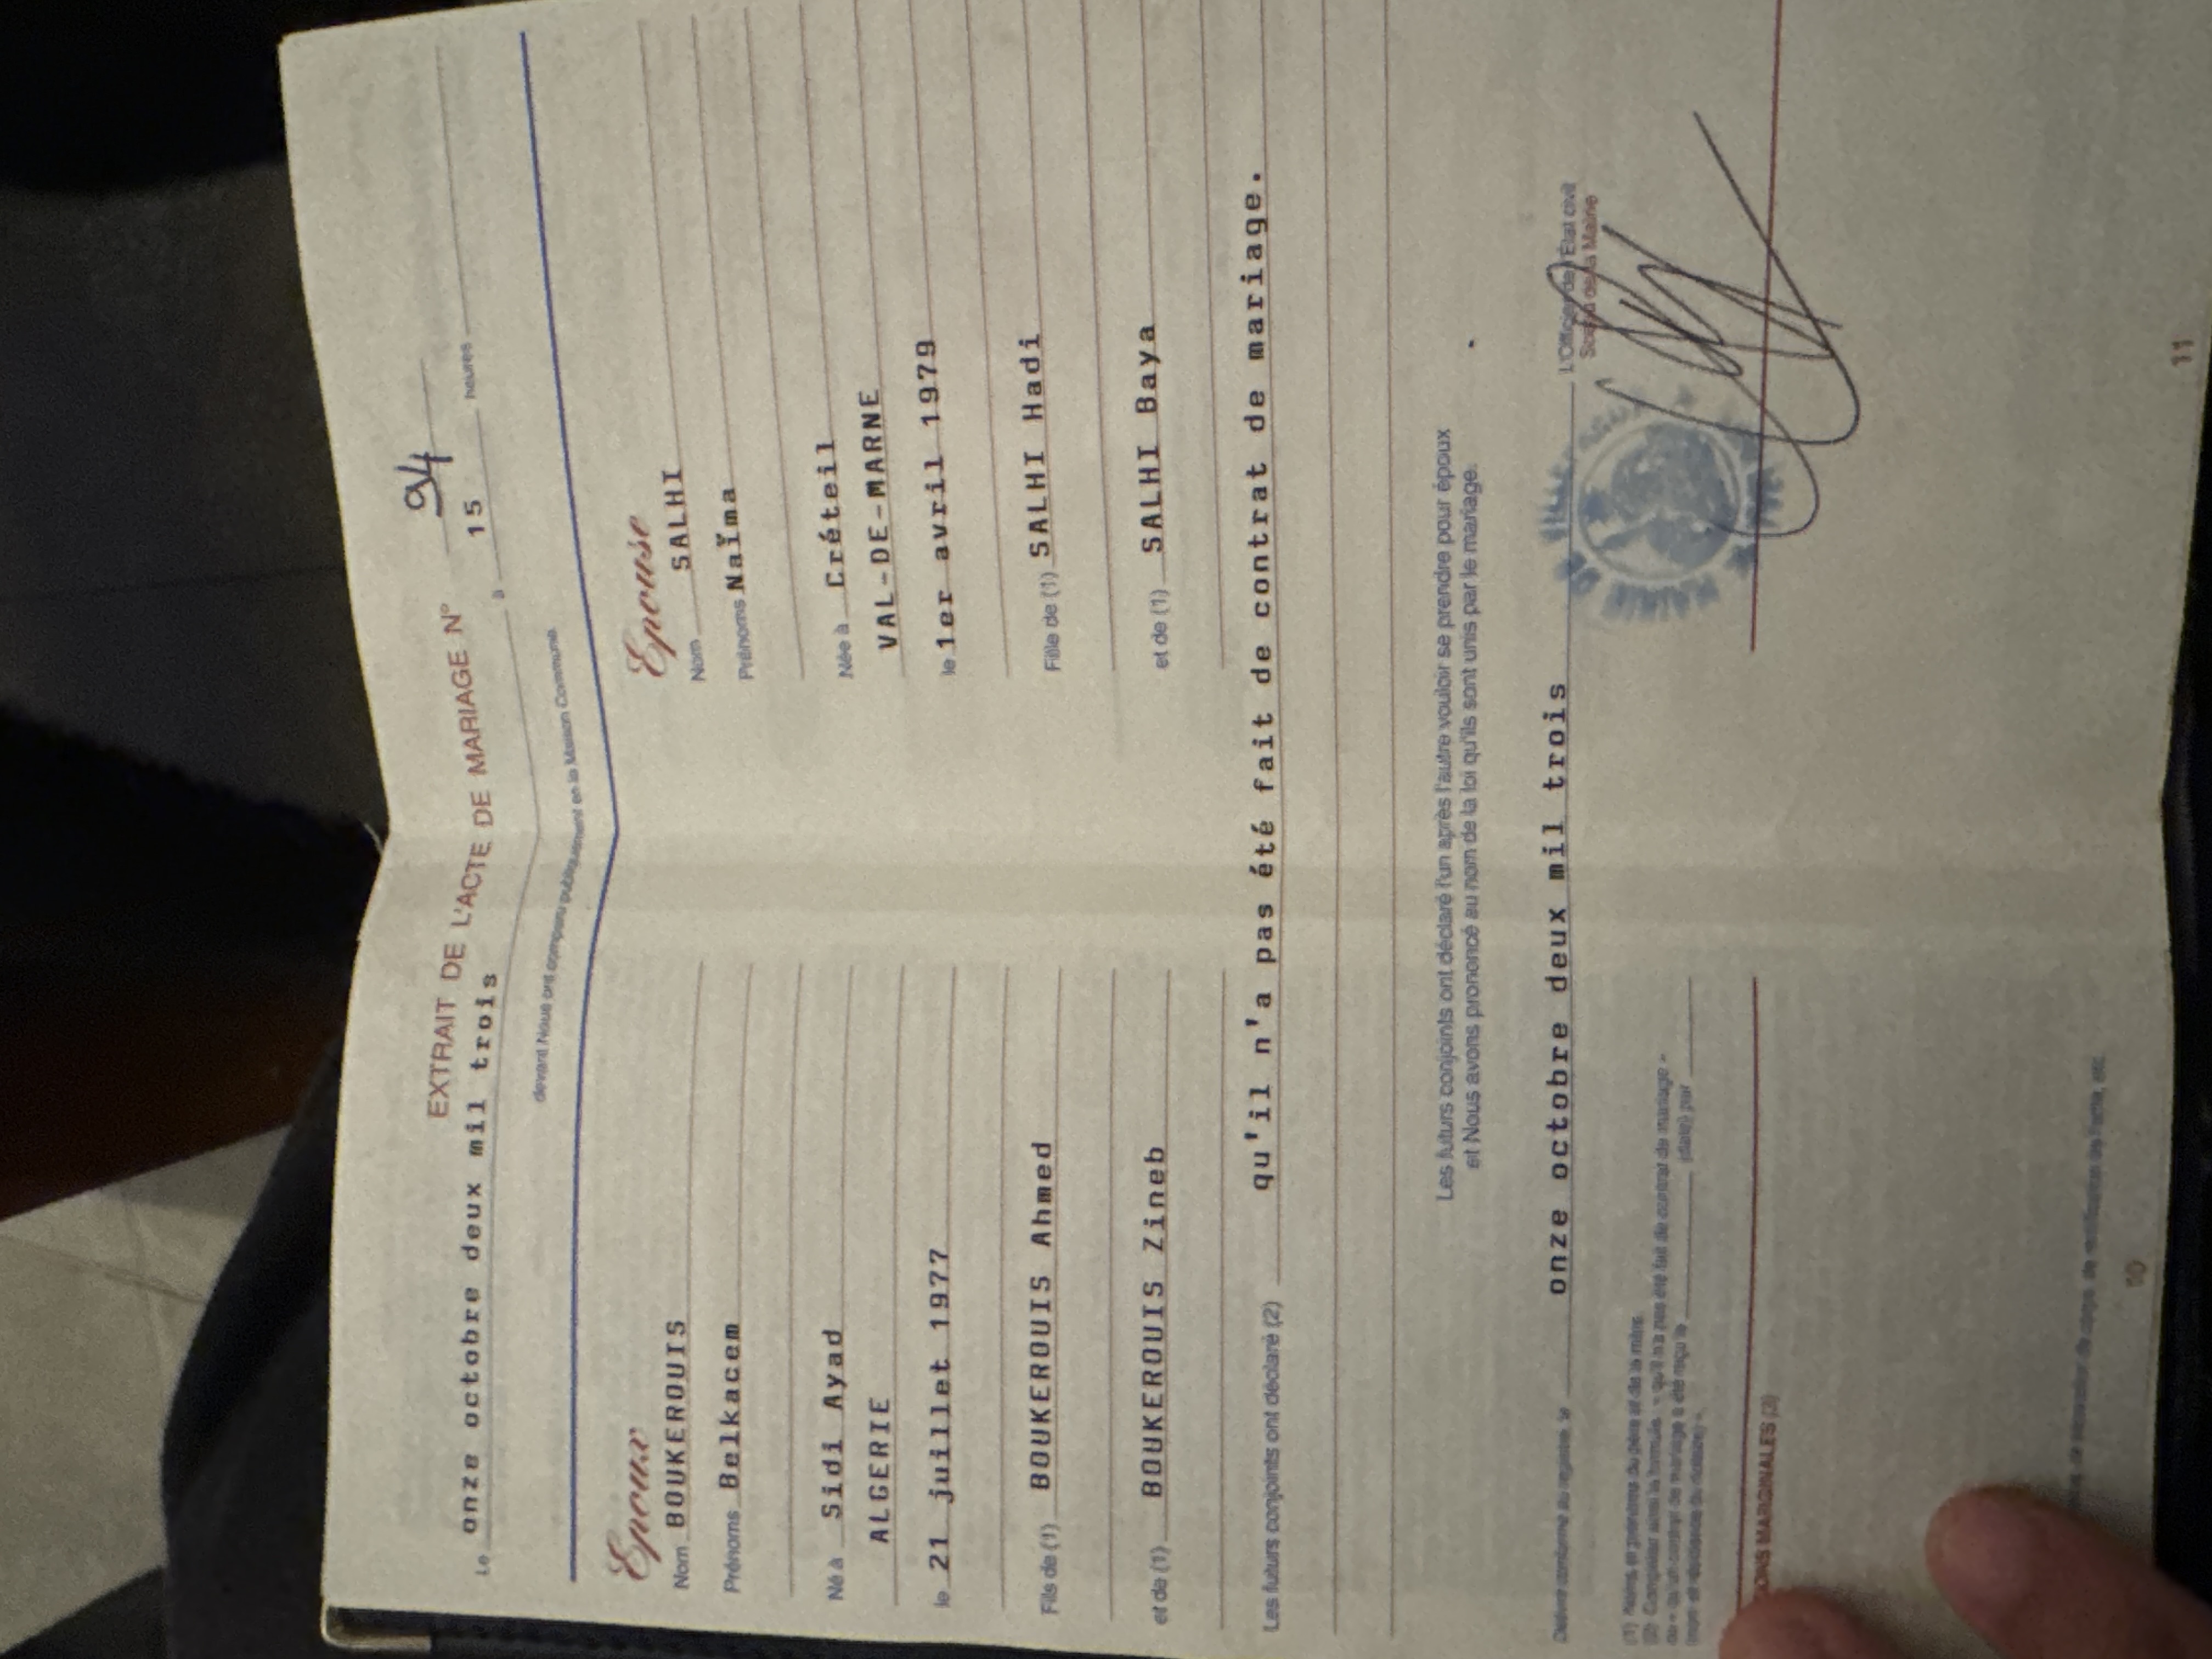 EXTRAIT DE L'ACTE DE MARIAGE N° 94
Le onze octobre deux mil trois à 15 heures
devant Nous ont comparu publiquement en la Maison Commune
Epoux
Nom BOUKEROUIS
Prénoms Belkacem
Né à Sidi Ayad
ALGERIE
le 21 juillet 1977
Fils de (1) BOUKEROUIS Ahmed
et de (1) BOUKEROUIS Zineb
Epouse
Nom SALHI
Prénoms Naïma
Née à Créteil
VAL-DE-MARNE
le 1er avril 1979
Fille de (1) SALHI Hadi
et de (1) SALHI Baya
Les futurs conjoints ont déclaré (2) qu'il n'a pas été fait de contrat de mariage.
Les futurs conjoints ont déclaré l'un après l'autre vouloir se prendre pour époux
et Nous avons prononcé au nom de la loi qu'ils sont unis par le mariage.
Délivré conforme au registre, le onze octobre deux mil trois
L'Officier de l'Etat civil
Sceau de la Mairie
(1) Noms et prénoms du père et de la mère.
(2) Compléter ainsi la formule : « qu'il n'a pas été fait de contrat de mariage »
ou « qu'un contrat de mariage a été reçu le (date) par
(nom et résidence du notaire) ».
MARGINALES (3)
10
11